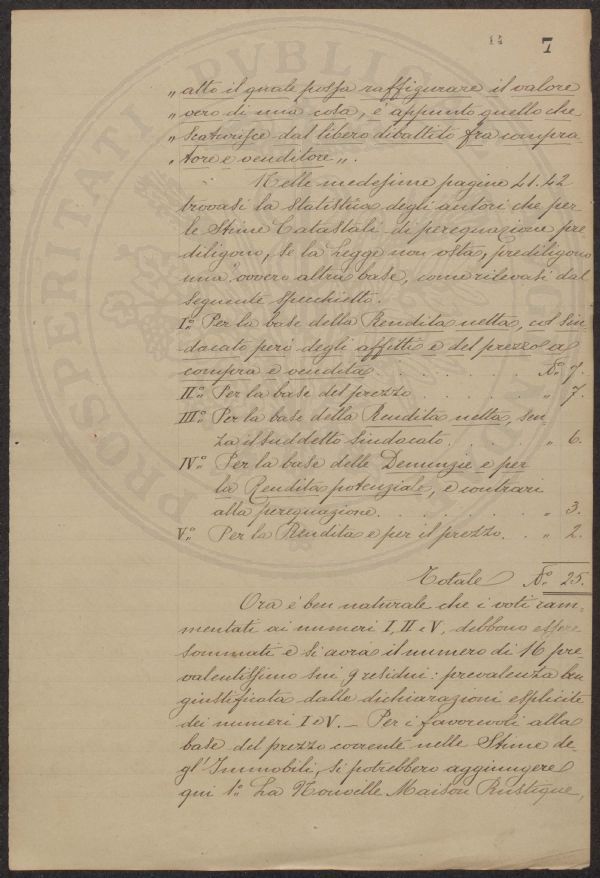 14 7
„ atto il quale possa raffigurare il valore
„ vero di una cosa, è appunto quello che
„ scaturisce dal libero dibattito fra compra
„ tore e venditore „.
Nelle medesime pagine 41.42
trovasi la Statistica degli autori che per
le Stime Catastali di perequazione pre
diligono, se la Legge non osta, prediligono
una, ovvero altra base, come rilevasi dal
seguente specchietto.
I.° Per la base della Rendita netta, col sin
dacato però degli affitti e del prezzo a
compra e vendita . . . . . . N.° 7.
II.° Per la base del prezzo . . . . . „ 7.
III.° Per la base della Rendita netta, sen
za il suddetto sindacato . . . . „ 6.
IV.° Per la base delle Denunzie e per
la Rendita potenziale, e contrari
alla perequazione . . . . . . . „ 3.
V.° Per la Rendita e per il prezzo . . „ 2.
Totale N.° 25.
Ora è ben naturale che i voti ram-
mentati ai numeri I, II e V, debbono essere
sommati e si avrà il numero di 16 pre-
valentissimo sui 9 residui: prevalenza ben
giustificata dalle dichiarazioni esplicite
dei numeri I e V. _ Per i favorevoli alla
base del prezzo corrente nelle Stime de-
gl'Immobili, si potrebbero aggiungere
qui 1.° La Nouvelle Maison Rustique,
PROSPERITATI PVBLICAE